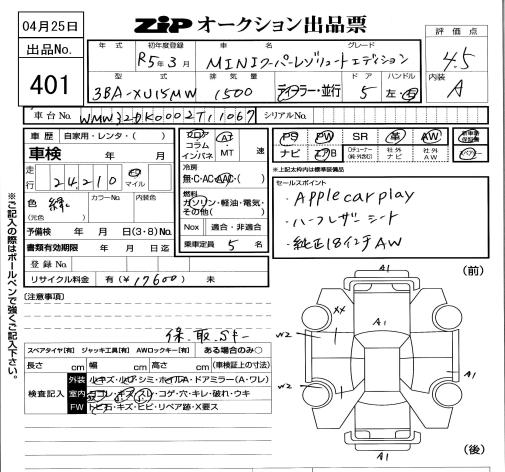 04月25日
ZiP オークション出品票
出品No.
401
評価点
4.5
内装
A
年式 初年度登録 車名 グレード
R5年3月 MINIクーパーレゾリュートエディション
型式 排気量 ドア ハンドル
3BA-XU15MW 1500 ディーラー・並行 5 左・右
車台No. WMW32DK0002T11067 シリアルNo.
車歴 自家用・レンタ・( )
車検 年 月
走行 24,210 km マイル
色 緑 カラーNo. 内装色
(元色)
予備検 年 月 日(3・8)No.
書類有効期限 年 月 日迄
登録No.
リサイクル料金 有(¥17600) 未
フロア AT
コラム
インパネ MT 速
冷房
無・C・AC・AAC・( )
燃料
ガソリン・軽油・電気・
その他( )
Nox 適合・非適合
乗車定員 5 名
PS PW SR 革 AW 新車時保証書
ナビ エアB TVチューナー(純・外含む) 社外ナビ 社外AW
*上記太枠内は標準装備品
セールスポイント
・Applecarplay
・ハーフレザーシート
・純正18インチAW
※ご記入の際はボールペンで強くご記入下さい。
[注意事項]
保.取.Sキー
スペアタイヤ[有] ジャッキ工具[有] AWロックキー[有] ある場合のみ○
長さ cm 幅 cm 高さ cm (車検証上の寸法)
検査記入
外装 ルキズ・ルワ・シミ・ホイルA・ドアミラー(A・ワレ)
室内 ヨゴレ・キズ・スレ・コゲ・穴・キレ・破れ・ウキ
FW トビ石・キズ・ヒビ・リペア跡・X要ス
(前)
A1
XX
A1
W2
W2
A1
A1
(後)